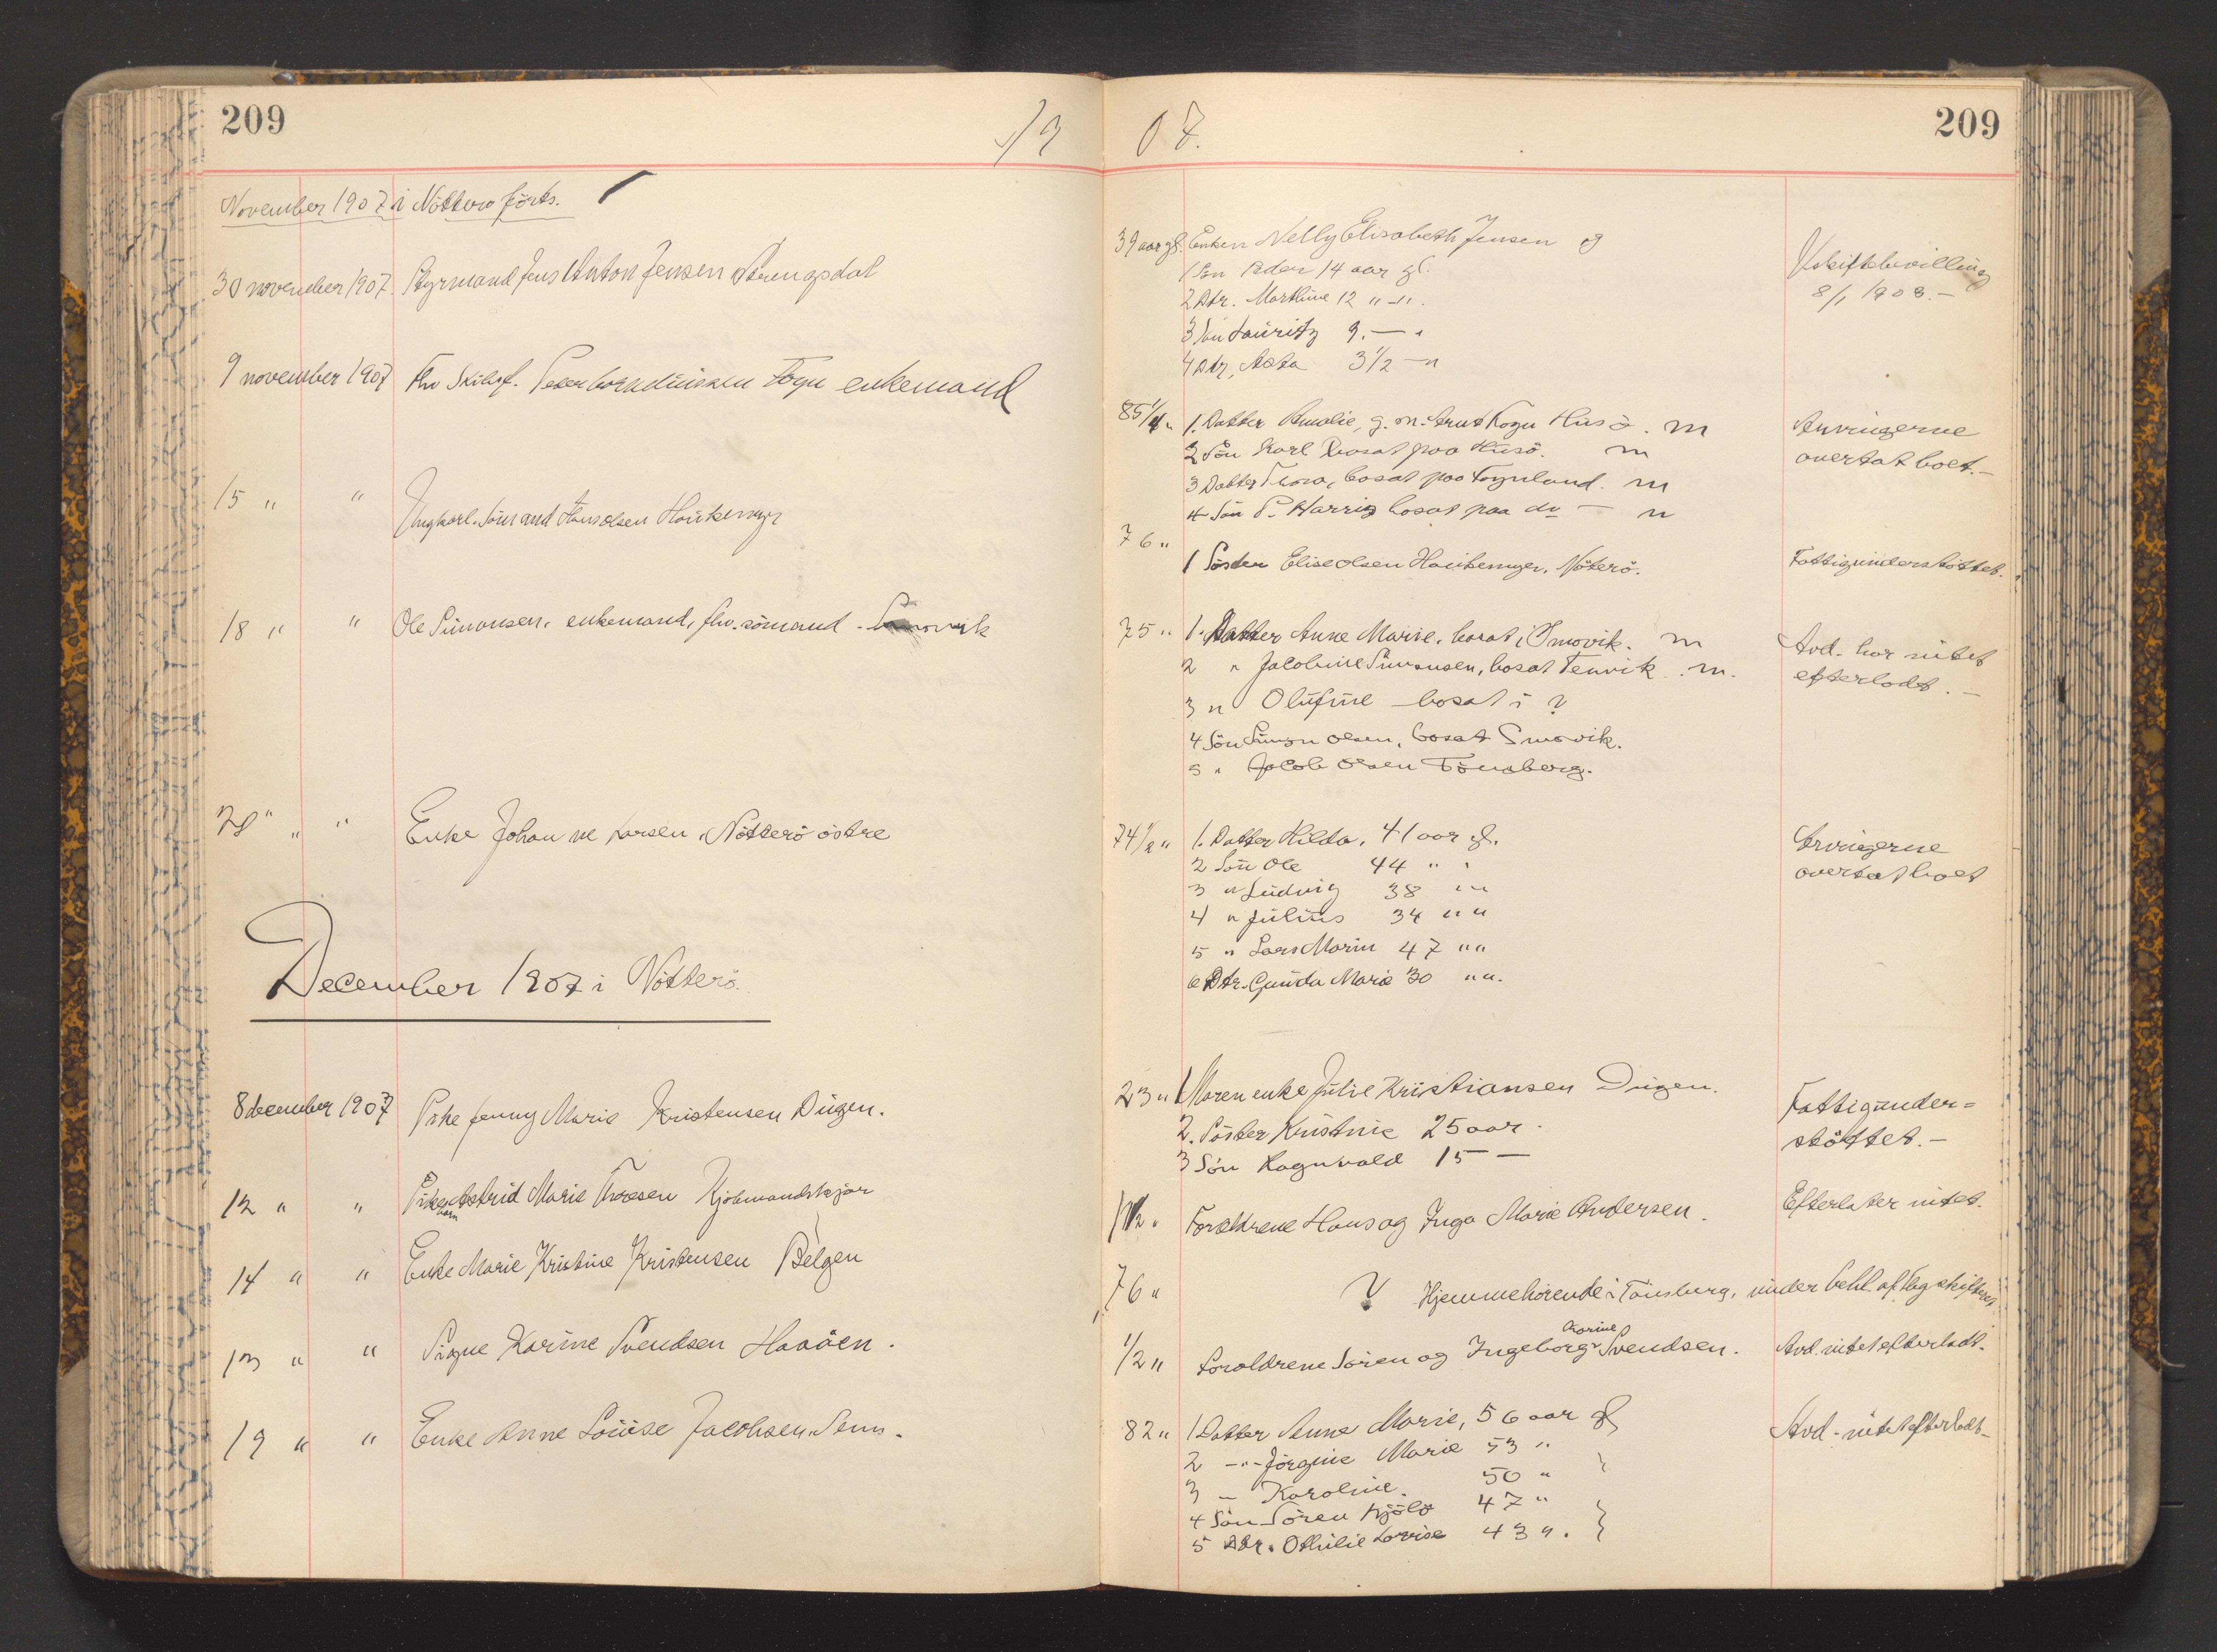 209
19
07.
209
November 1907 i Nötterö forts.
30 november 1907. Styrmand Jens Anton Jensen Strengsdal
39 aar gl. Enken Nelly Elisabeth Jensen og
1 Sön Peder 14 aar gl.
2 Dtr. Marthine 12 " - " .
3 Sön Lauritz 9. — "
4 Dtr. Aasta 3 1/2 — "
Uskiftebevilling
8/1 1908. —
9 november 1907 fhv Skibsf. Togn enkemand
85 1/4 " 1. Datter Amalie, g. m. Arnt Togn Husö. m
2 Sön Karl bosat paa Husö. m
3 Datter Thora, bosat paa Tognland. m
4 Sön P. Harris bosat paa do — m
Arvingerne
overtat boet. —
15 " " Ungkarl. Sömand Hans Olsen Haukemyr
76 "
1 Söster Elise Olsen Haukemyr, Nöterö.
Fattigunderstöttet.
18 " " Ole Simonsen, enkemand, fhv. sömand.
75 " 1. Datter Anne Marie, bosat i Smovik. m
2 " Jacobine Simonsen, bosat Tenvik. m.
3 " Olufine bosat i ?
4 Sön Simon Olsen, bosat Smovik.
5 " Jacob Olsen Tönsberg.
Avd. har intet
efterladt. —
28 " " Enke Johanne Larsen, Nötterö östre
74 1/2 " 1. Datter Hilda. 41 aar gl.
2 Sön Ole 44 " "
3 " Ludvig 38 " "
4 " Julius 34 " "
5 " Lars Marin 47 " "
6 Dtr. Gunda Marie 30 " ".
Arvingerne
overtat boet
December 1907 i Nötterö.
8 december 1907 Pike Jenny Marie Kristensen Dugen.
23 " 1 Moren enke Julie Kristiansen Dugen.
2. Söster Kristine 25 aar.
3 Sön Ragnvald 15 —
Fattigunder=
stöttet. —
12 " " Pikebarn Astrid Marie Thoresen Kjöbmandskjær
1/12 " Forældrene Hans og Inga Marie Andersen.
Efterlater intet.
14 " " Enke Marie Kristine Kristensen Bölgen
76 " ? Hjemmehörende i Tönsberg, under behl. af skifteret
13 " " Signe Karine Svendsen Haaöen.
1/2 " Foroldrene Sören og Ingeborg Karine Svendsen.
Avd. intet efterladt.
19 " " Enke Anne Louise Jacobsen Sem.
82 " 1 Datter Anne Marie, 56 aar gl
2 - " - Jörgine Marie 53 "
3 — Karoline. 50 "
4 Sön Sören 47 "
5 Dtr. Othilie Lovise 43 ".
Avd. intet efterladt —